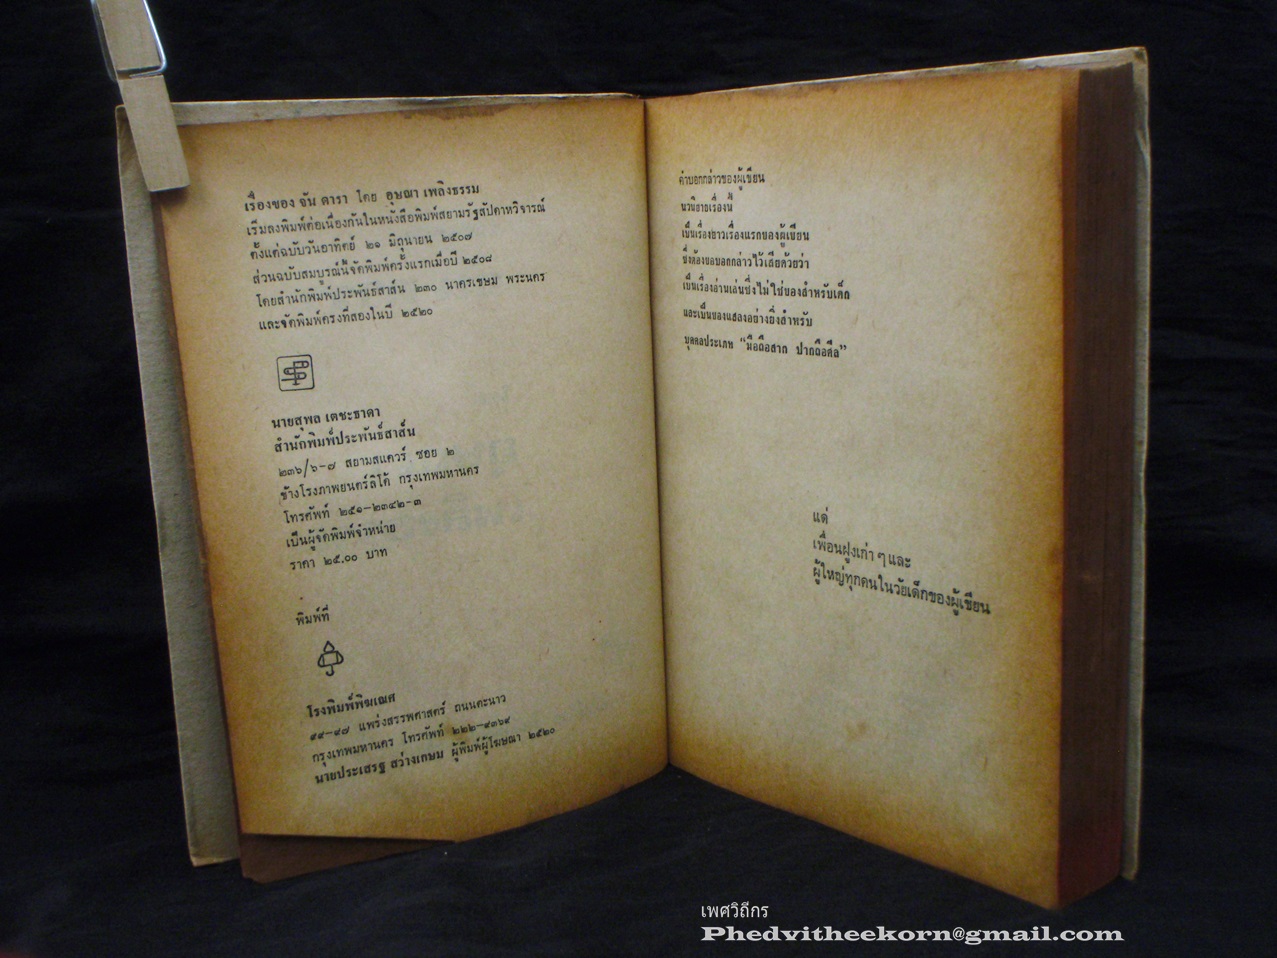 เรื่องของ จัน ดารา โดย อุษณา เพลิงธรรม
เริ่มลงพิมพ์ต่อเนื่องกันในหนังสือพิมพ์สยามรัฐสัปดาหวิจารณ์
ตั้งแต่ฉบับวันอาทิตย์ ๒๑ มิถุนายน ๒๕๐๗
ส่วนฉบับสมบูรณ์นี้จัดพิมพ์ครั้งแรกเมื่อปี ๒๕๐๘
โดยสำนักพิมพ์ประพันธ์สาส์น ๒๓๐ นาครเขษม พระนคร
และจัดพิมพ์ครั้งที่สองในปี ๒๕๒๐
นายสุพล เตชะธาดา
สำนักพิมพ์ประพันธ์สาส์น
๒๓๖/๖-๗ สยามสแควร์ ซอย ๒
ข้างโรงภาพยนตร์ลิโด้ กรุงเทพมหานคร
โทรศัพท์ ๒๕๑-๒๓๔๒-๓
เป็นผู้จัดพิมพ์จำหน่าย
ราคา ๒๕.๐๐ บาท
พิมพ์ที่
โรงพิมพ์พิฆเณศ
แพร่งสรรพศาสตร์ ถนนตะนาว
กรุงเทพมหานคร โทรศัพท์ ๒๒๒-๔๓๖๙
นายประเสริฐ สว่างเกษม ผู้พิมพ์ผู้โฆษณา ๒๕๒๐
คำบอกกล่าวของผู้เขียน
นวนิยายเรื่องนี้
เป็นเรื่องยาวเรื่องแรกของผู้เขียน
ซึ่งต้องขอบอกกล่าวไว้เสียด้วยว่า
เป็นเรื่องอ่านเล่นซึ่งไม่ใช่ของสำหรับเด็ก
และเป็นของแสลงอย่างยิ่งสำหรับ
บุคคลประเภท “มือถือสาก ปากถือศีล”
แด่
เพื่อนฝูงเก่า ๆ และ
ผู้ใหญ่ทุกคนในวัยเด็กของผู้เขียน
เพศวิถีกร
Phedvitheekorn@gmail.com